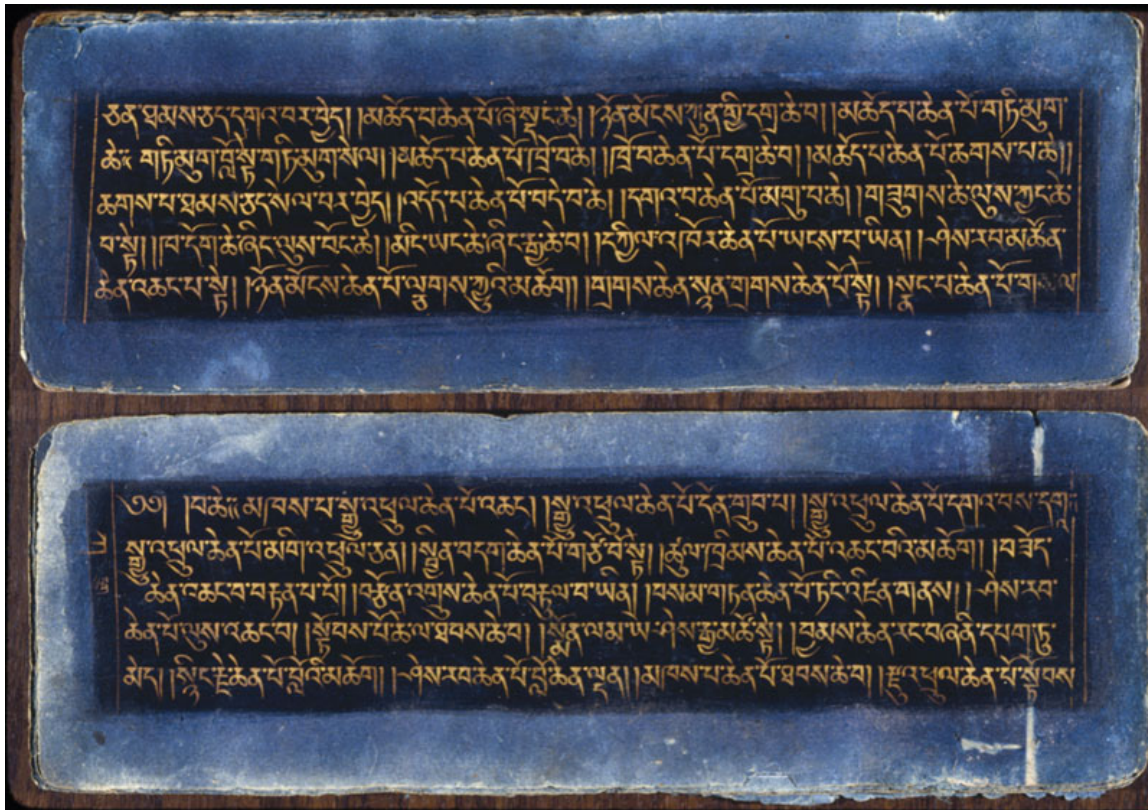 ཅན་ཐམས་ཅད་དགའ་བར་བྱེད། །མཆོད་པ་ཆེན་པོ་ཞེ་སྡང་ཆེ། །ཉོན་མོངས་ཀུན་གྱི་དགྲ་ཆེ་བ། །མཆོད་པ་ཆེན་པོ་གཏི་མུག་
ཆེ༔ གཏི་མུག་བློ་སྟེ་གཏི་མུག་སེལ། །མཆོད་པ་ཆེན་པོ་ཁྲོ་བ་ཆེ། །ཁྲོ་བ་ཆེན་པོ་དགྲ་ཆེ་བ། །མཆོད་པ་ཆེན་པོ་ཆགས་པ་ཆེ།།
ཆགས་པ་ཐམས་ཅད་སེལ་བར་བྱེད། །འདོད་པ་ཆེན་པོ་བདེ་བ་ཆེ། །དགའ་བ་ཆེན་པོ་མགུ་བ་ཆེ། །གཟུགས་ཆེ་ལུས་ཀྱང་ཆེ་
བ་སྟེ། །ཁ་དོག་ཆེ་ཞིང་ལུས་བོང་ཆེ། །མིང་ཡང་ཆེ་ཞིང་རྒྱ་ཆེ་བ། །དཀྱིལ་འཁོར་ཆེན་པོ་ཡངས་པ་ཡིན། །ཤེས་རབ་མཚོན་
ཆེན་འཆང་པ་སྟེ། །ཉོན་མོངས་ཆེན་པོ་ལྕགས་ཀྱུའི་མཆོག །གྲགས་ཆེན་སྙན་གྲགས་ཆེན་པོ་སྟེ། །སྣང་པ་ཆེན་པོ་གསལ
༄༅། །བ་ཆེ༔ མཁས་པ་སྒྱུ་འཕྲུལ་ཆེན་པོ་འཆང། །སྒྱུ་འཕྲུལ་ཆེན་པོ་དོན་གྲུབ་པ། །སྒྱུ་འཕྲུལ་ཆེན་པོ་དགའ་བས་དགའ༔
སྒྱུ་འཕྲུལ་ཆེན་པོ་མིག་འཕྲུལ་ཅན། །སྦྱིན་བདག་ཆེན་པོ་གཙོ་བོ་སྟེ། །ཚུལ་ཁྲིམས་ཆེན་པོ་འཆང་བའི་མཆོག །བཟོད་
ཆེན་འཆང་བ་བརྟན་པ་པོ། །བརྩོན་འགྲུས་ཆེན་པོ་བརྟུལ་བ་ཡིན། །བསམ་གཏན་ཆེན་པོ་ཏིང་འཛིན་གནས། །ཤེས་རབ་
ཆེན་པོ་ལུས་འཆང་བ། །སྟོབས་པོ་ཆེ་ལ་ཐབས་ཆེ་བ། །སྨོན་ལམ་ཡེ་ཤེས་རྒྱ་མཚོ་སྟེ། །བྱམས་ཆེན་རང་བཞིན་དཔག་ཏུ་
མེད། །སྙིང་རྗེ་ཆེན་པོ་བློའི་མཆོག །ཤེས་རབ་ཆེན་པོ་བློ་ཆེན་ལྡན། །མཁས་པ་ཆེན་པོ་ཐབས་ཆེ་བ། །རྫུ་འཕྲུལ་ཆེན་པོ་སྟོབས